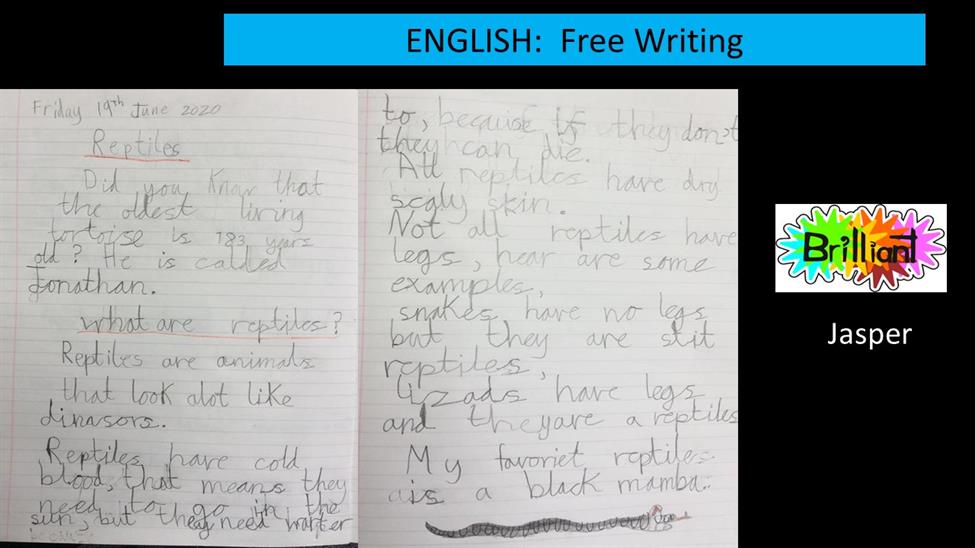 ENGLISH: Free Writing
Friday 19th June 2020
Reptiles
Did you know that
the oldest living
tortoise is 183 years
old? He is called
Jonathan.
What are reptiles?
Reptiles are animals
that look alot like
dinasors.
Reptiles have cold
blood, that means they
need to go in the
sun, but they need warter
to, because if they don't
they can die.
All reptiles have dry
scaly skin.
Not all reptiles have
legs, hear are some
examples,
snakes have no legs
but they are stit
reptiles,
lizads have legs
and they are a reptiles
My favoriet reptiles
is a black mamba.
Brilliant
Jasper